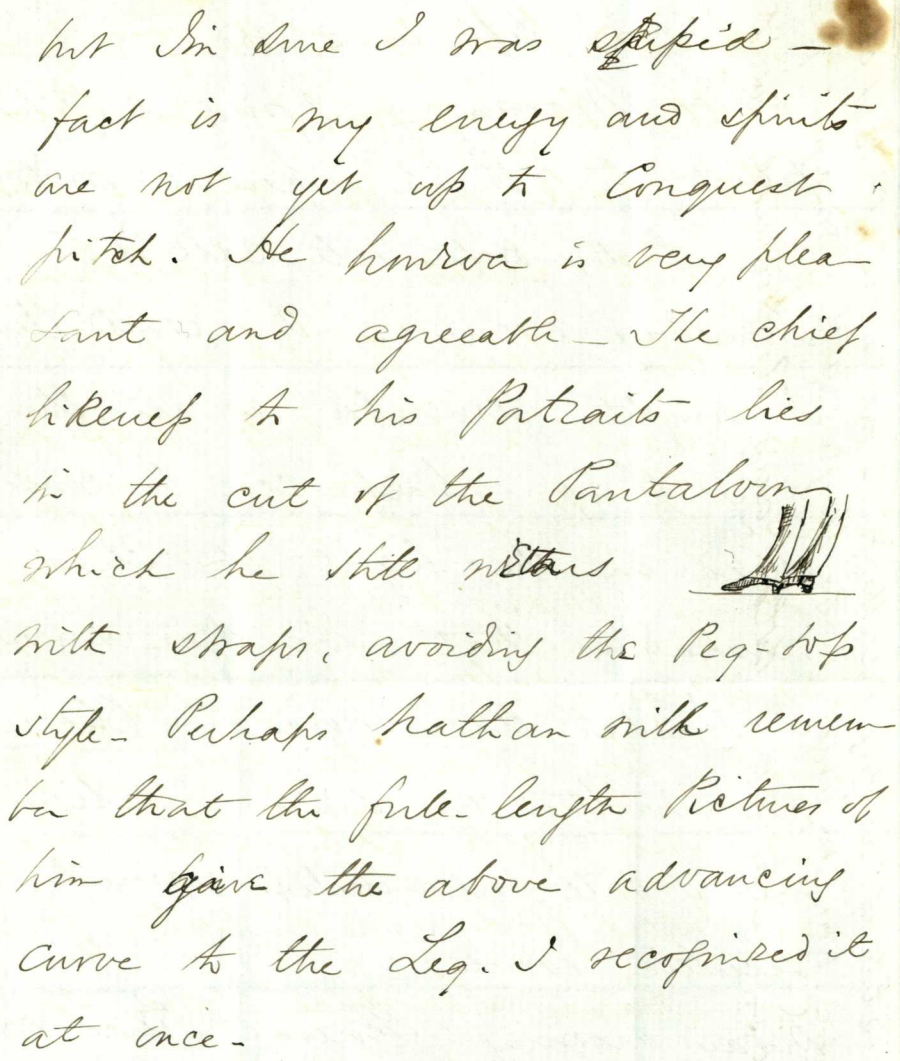 but I'm sure I was stupid –
fact is my energy and spirits
are not yet up to Conquest
pitch. He however is very plea
sant and agreeable – The chief
likeness to his Portraits lies
in the cut of the Pantaloon
which he still wears
with straps, avoiding the Peg-top
style – Perhaps Nathan will remem
ber that the full-length Pictures of
him give the above advancing
curve to the Leg. I recognized it
at once –